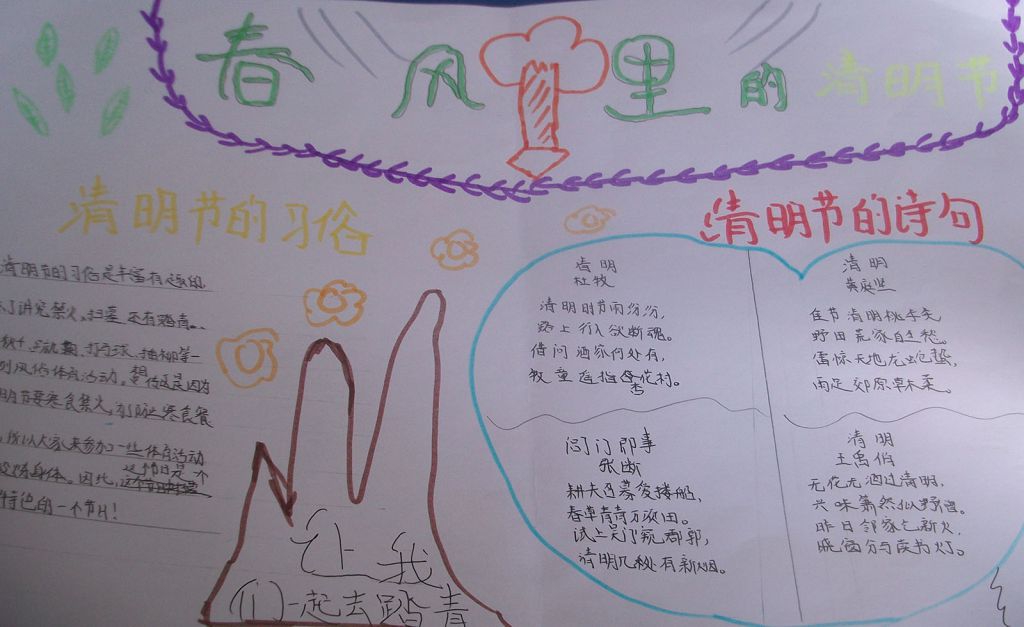 春风里的清明节
清明节的习俗
清明节的习俗是丰富有趣的
讲究禁火、扫墓,还有踏青、
秋千、蹴鞠、打马球、插柳等一
列风俗体育活动。相传这是因为
明节要寒食禁火,为防止寒食餐
所以大家来参加一些体育活动
锻炼身体。因此,这节日是一个
特色的一个节日!
让我
们一起去踏青
清明节的诗句
清明
杜牧
清明时节雨纷纷,
路上行人欲断魂。
借问酒家何处有,
牧童遥指杏花村。
清明
黄庭坚
佳节清明桃李笑,
野田荒冢自生愁。
雷惊天地龙蛇蛰,
雨足郊原草木柔。
闾门即事
张断
耕夫召募逐楼船,
春草青青万顷田。
试上吴门窥郡郭,
清明几秘有新烟。
清明
王禹伯
无花无酒过清明,
兴味萧然似野僧。
昨日邻家乞新火,
晓窗分与读书灯。